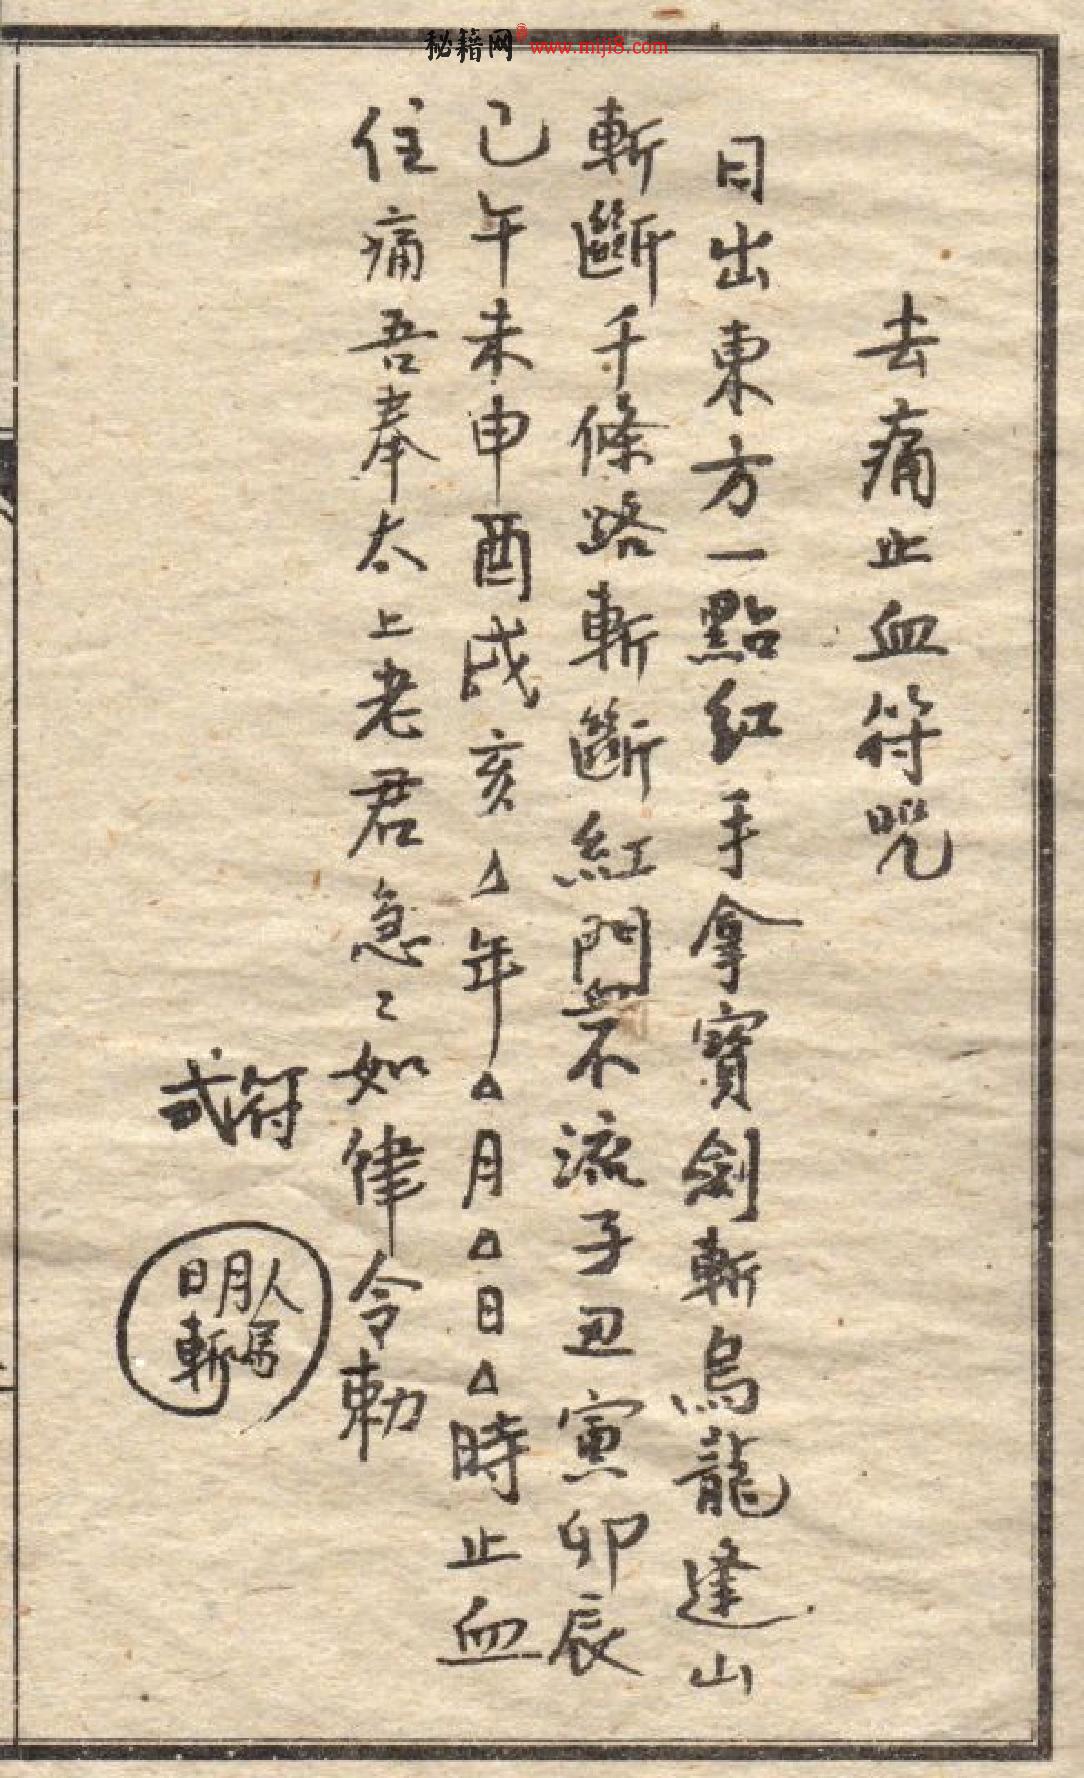 秘籍网 www.miji8.com
去痛止血符咒
日出東方一點紅手拿寶劍斬烏龍逢山
斬斷千條路斬斷紅門血不流子丑寅卯辰
巳午未申酉戌亥△年△月△日△時止血
住痛吾奉太上老君急〻如律令勅
符式
人馬
月
日斬